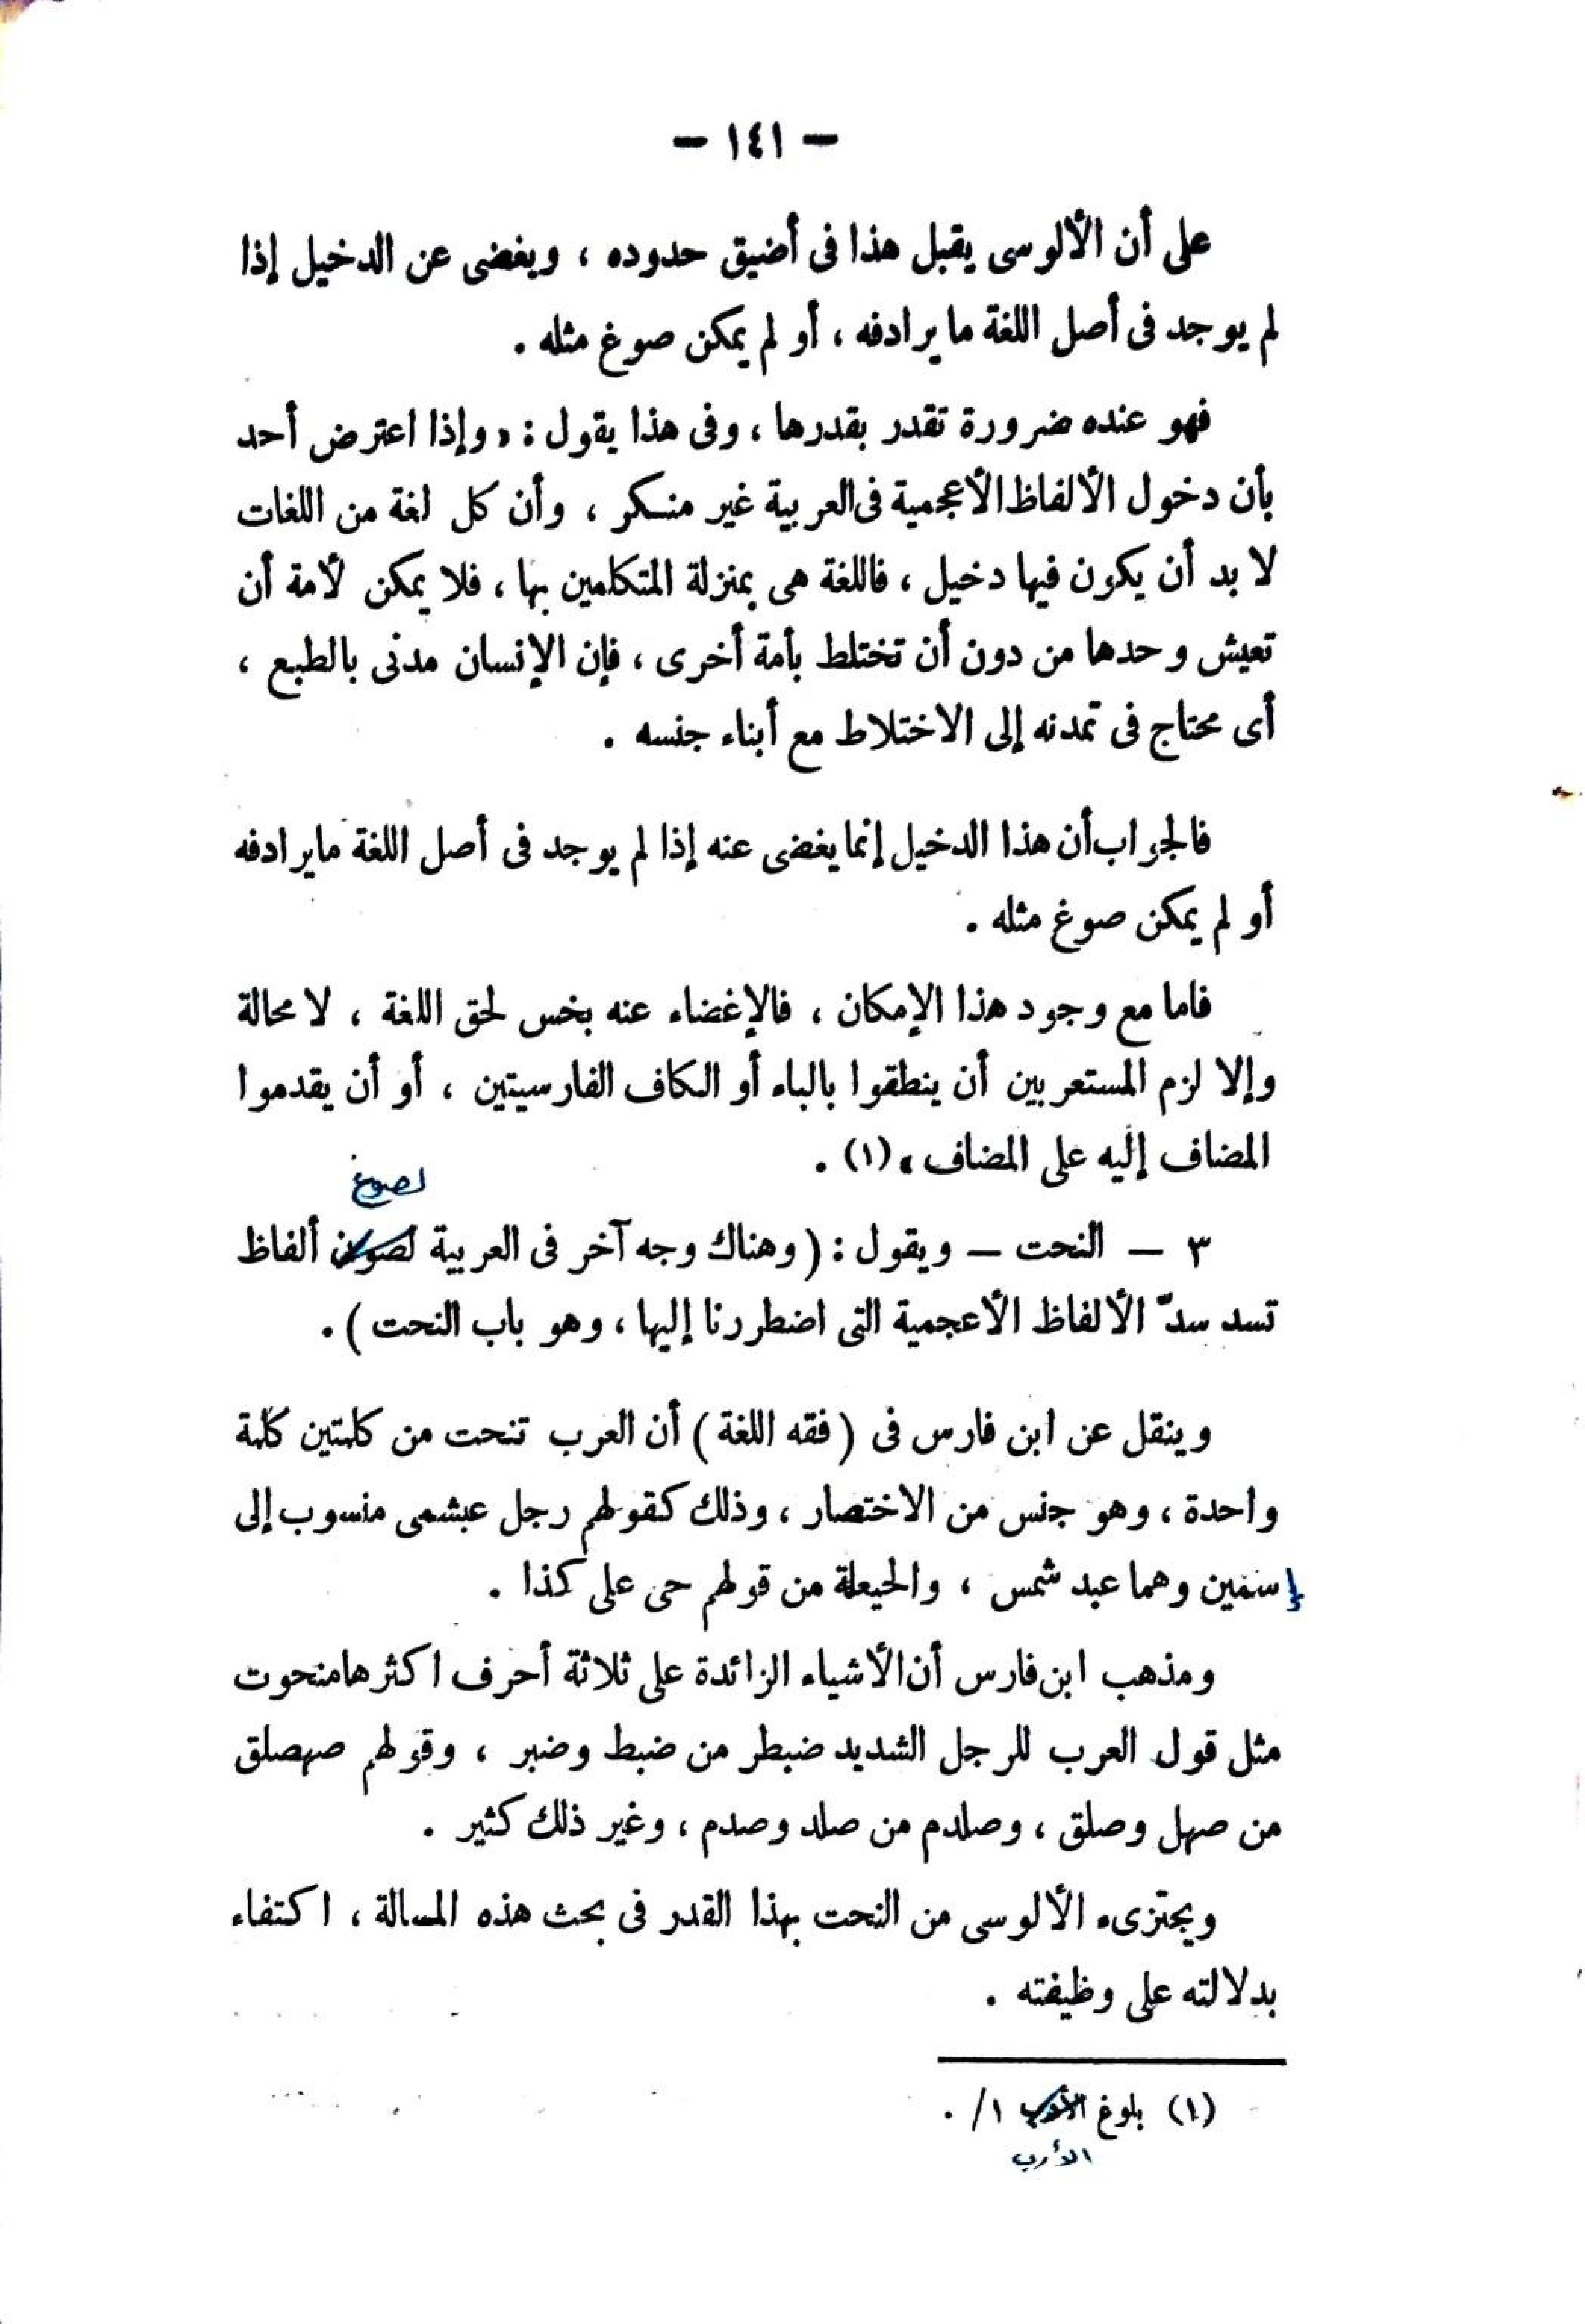 — ١٤١ —
على أن الألوسى يقبل هذا فى أضيق حدوده ، ويغضى عن الدخيل إذا
لم يوجد فى أصل اللغة ما يرادفه ، أو لم يمكن صوغ مثله .
فهو عنده ضرورة تقدر بقدرها ، وفى هذا يقول : « وإذا اعترض أحد
بأن دخول الألفاظ الأعجمية فى العربية غير منكر ، وأن كل لغة من اللغات
لا بد أن يكون فيها دخيل ، فاللغة هى بمنزلة المتكلمين بها ، فلا يمكن لأمة أن
تعيش وحدها من دون أن تختلط بأمة أخرى ، فإن الإنسان مدنى بالطبع ،
أى محتاج فى تمدنه إلى الاختلاط مع أبناء جنسه .
فالجواب أن هذا الدخيل إنما يغضى عنه إذا لم يوجد فى أصل اللغة ما يرادفه
أو لم يمكن صوغ مثله .
فاما مع وجود هذا الإمكان ، فالإغضاء عنه بخس لحق اللغة ، لا محالة
وإلا لزم المستعربين أن ينطقوا بالباء أو الكاف الفارسيتين ، أو أن يقدموا
المضاف إليه على المضاف » (١) .
لصوغ
٣ — النحت — ويقول : ( وهناك وجه آخر فى العربية لصون ألفاظ
تسد سدّ الألفاظ الأعجمية التى اضطررنا إليها ، وهو باب النحت ) .
وينقل عن ابن فارس فى ( فقه اللغة ) أن العرب تنحت من كلمتين كلمة
واحدة ، وهو جنس من الاختصار ، وذلك كقولهم رجل عبشمى منسوب إلى
إسمين وهما عبد شمس ، والحيعلة من قولهم حى على كذا .
ومذهب ابن فارس أن الأشياء الزائدة على ثلاثة أحرف اكثرها منحوت
مثل قول العرب للرجل الشديد ضبطر من ضبط وضبر ، وقولهم صهصلق
من صهل وصلق ، وصلدم من صلد وصدم ، وغير ذلك كثير .
ويجتزىء الألوسى من النحت بهذا القدر فى بحث هذه المسالة ، اكتفاء
بدلالته على وظيفته .
(١) بلوغ ١/ .
الأرب